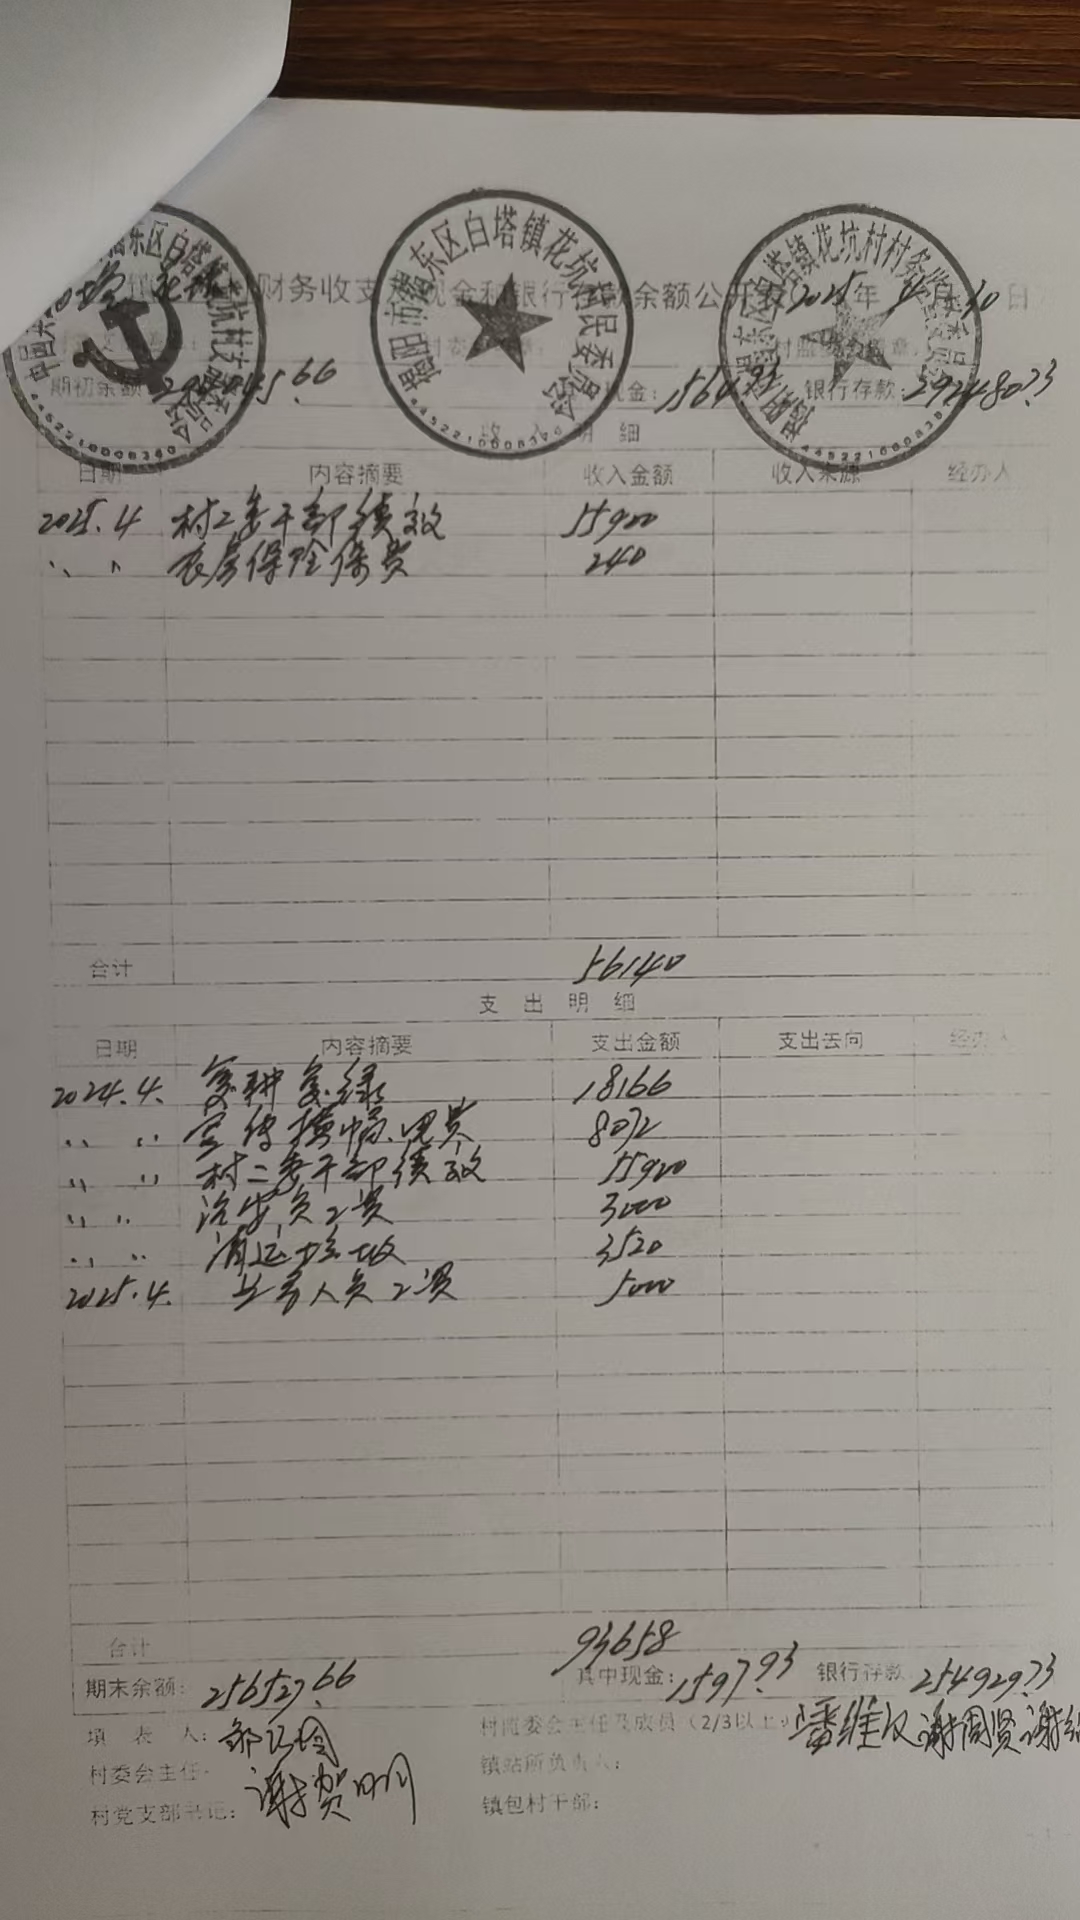 中国共 揭东区白塔镇花坑村支部委员会
4452210008360
揭阳市揭东区白塔镇花坑村民委员会
揭东区白塔镇花坑村村务监督委员会
财务收支 现金和银行存款余额公开表 2025年4月30日
期初余额 .66 现金: 银行存款: 292480.73
收入明细
日期 内容摘要 收入金额 收入来源 经办人
2025.4 村二委干部绩效 55900
〃 〃 农房保险保费 240
合计 56140
支出明细
日期 内容摘要 支出金额 支出去向 经办人
2024.4. 复耕复绿 18166
〃 〃 宣传横幅.电费 8072
〃 〃 村二委干部绩效 55900
〃 〃 治安员工资 3000
〃 〃 清运垃圾 3520
2025.4. 人员工资 5000
合计 93658
期末余额: 256527.66 其中现金: 1597.93 银行存款 254929.73
填表人: 村两委会主任及成员(2/3以上) 潘维 谢周贤 谢
村委会主任: 镇站所负责人:
村党支部书记: 谢贺明 镇包村干部: